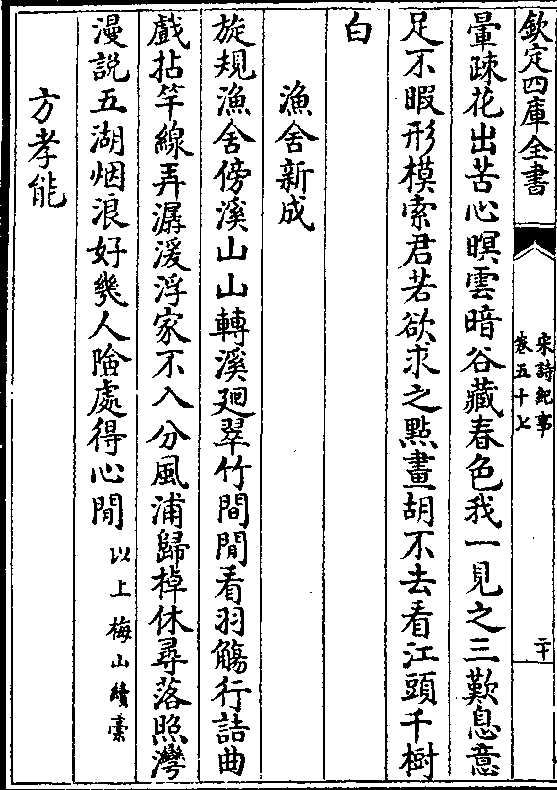 欽定四庫全書
宋詩紀事
卷五十七
二十
暈疎花出苦心暝雲暗谷藏春色我一見之三歎息意
足不暇形模索君若欲求之點畫胡不去看江頭千樹
白
漁舍新成
旋規漁舍傍溪山山轉溪廻翠竹間閒看羽觴行詰曲
戲拈竿線弄潺湲浮家不入分風浦歸棹休尋落照灣
漫說五湖烟浪好幾人險處得心閒以上梅山續稾
方孝能